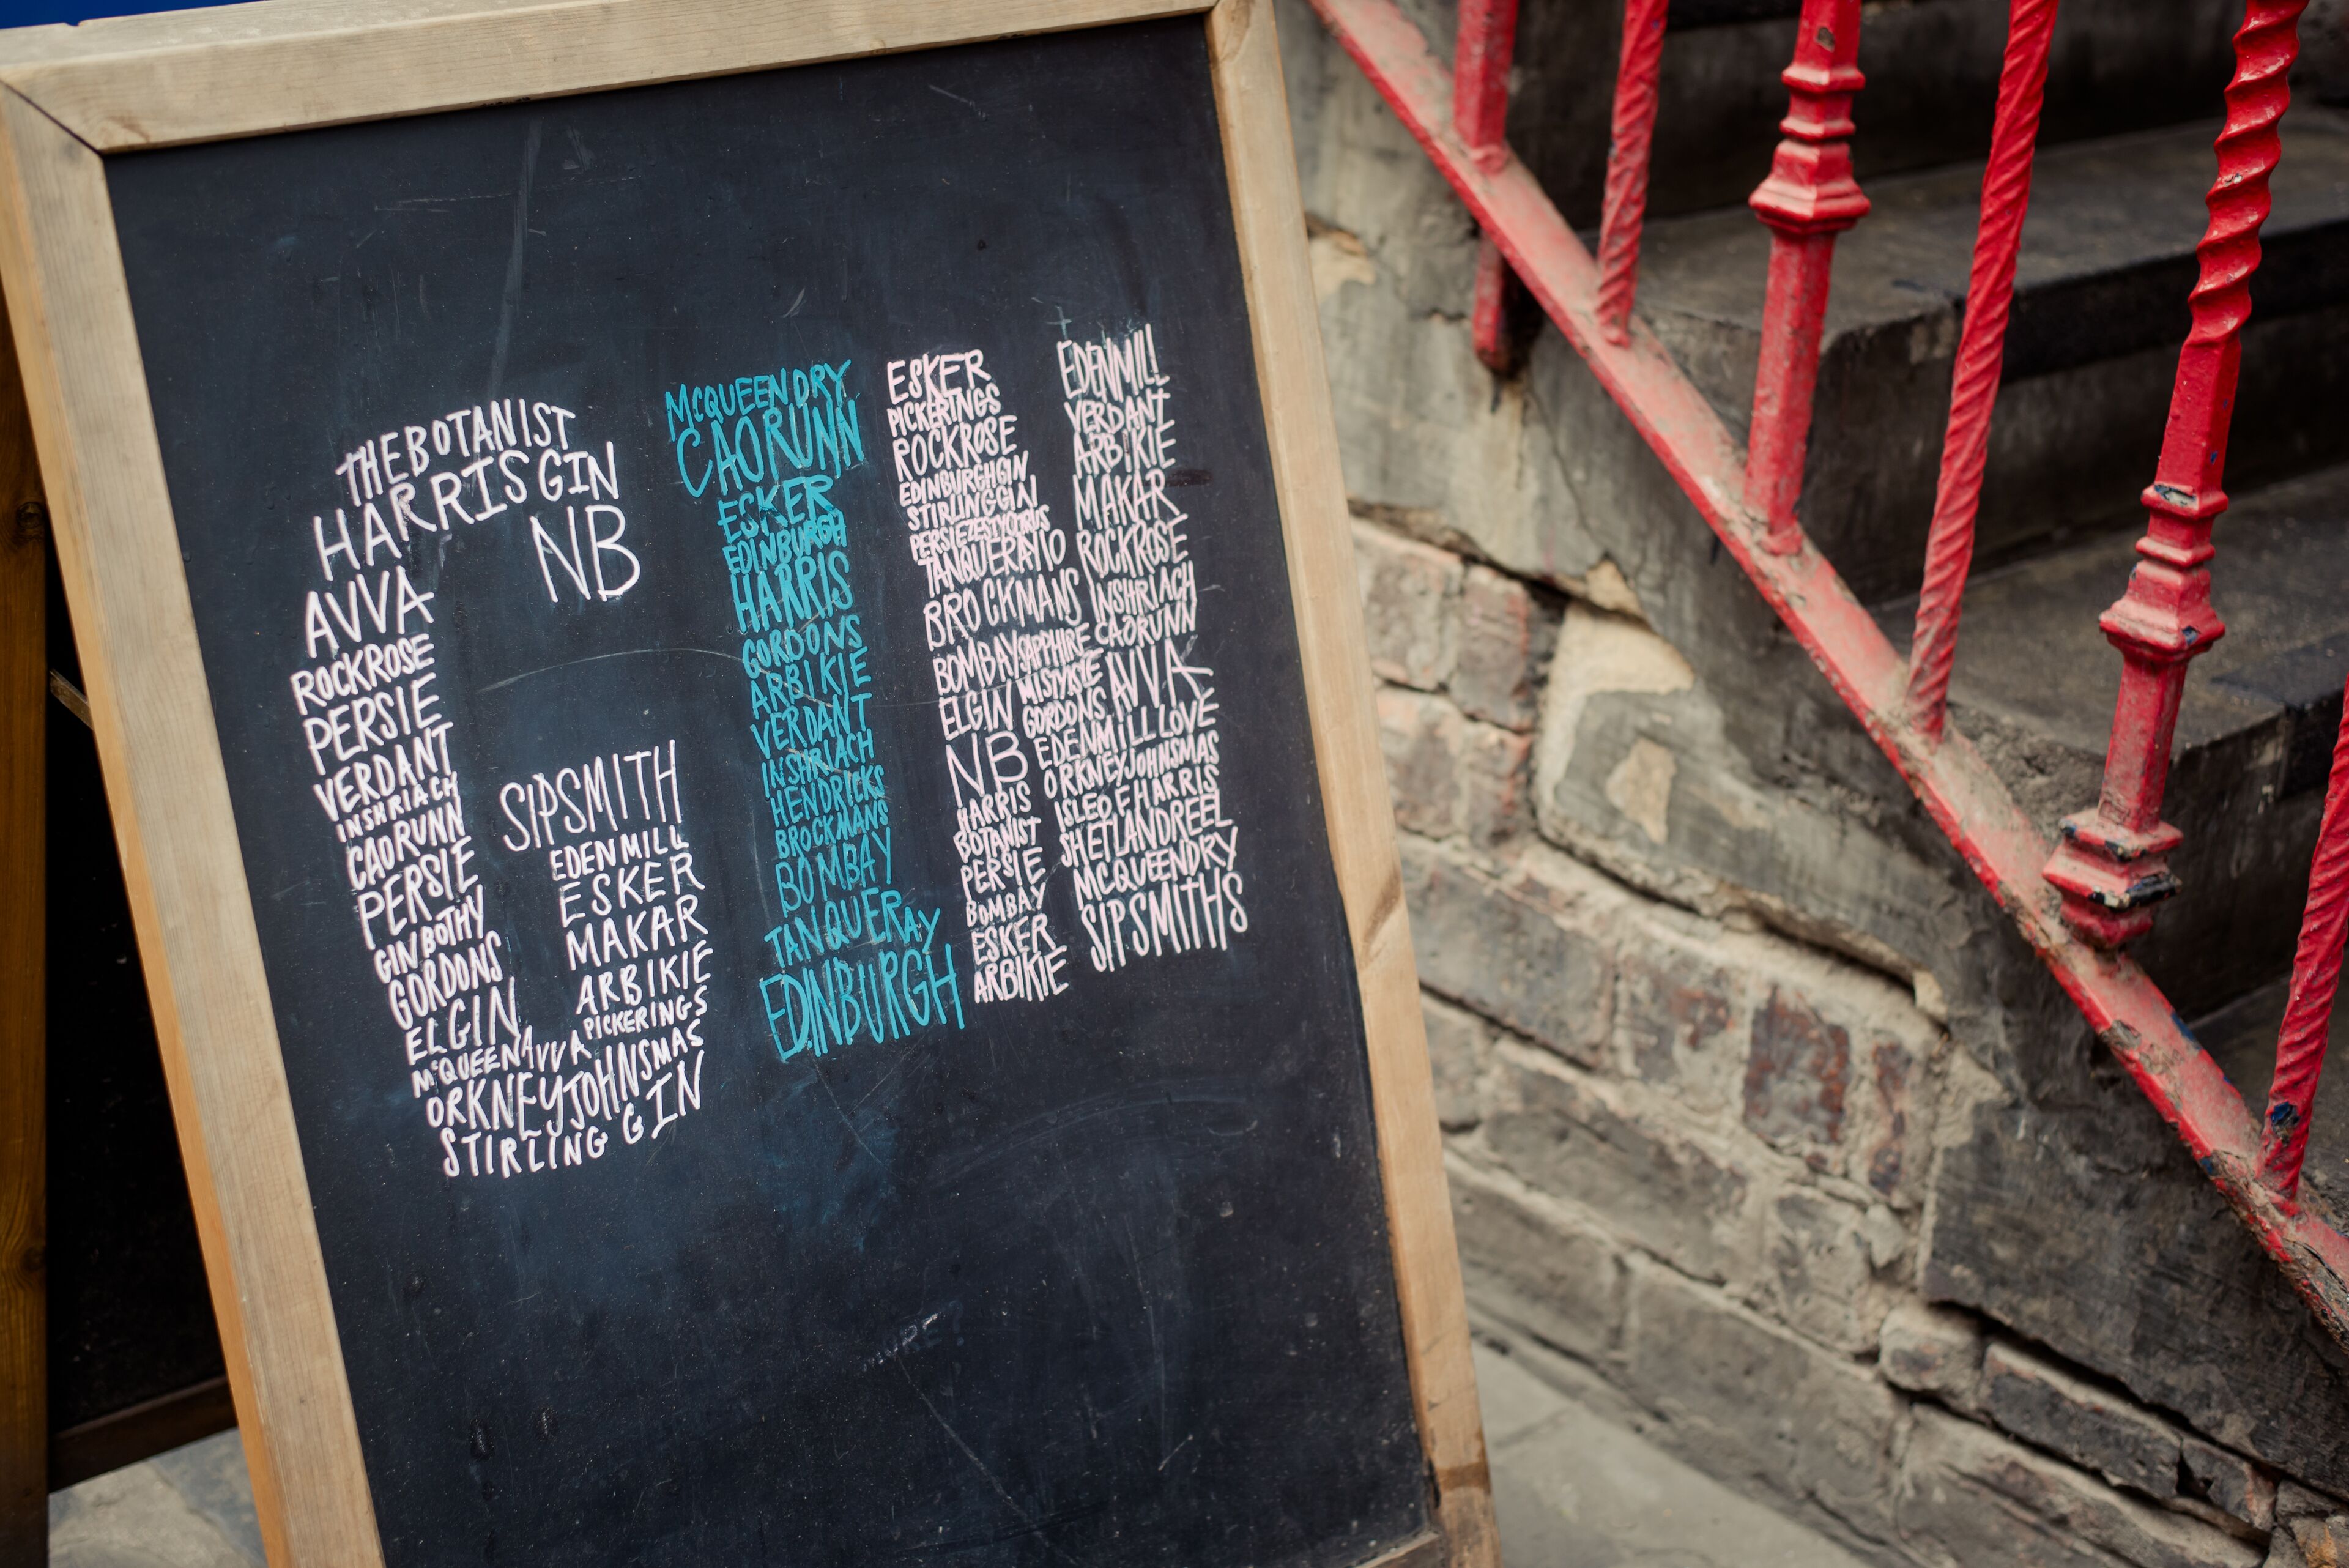 THE BOTANIST
HARRIS GIN
NB
AVVA
ROCKROSE
PERSIE
VERDANT
INSHRIACH
CAORUNN
PERSIE
GIN BOTHY
GORDONS
ELGIN
SIPSMITH
EDEN MILL
ESKER
MAKAR
ARBIKIE
PICKERINGS
MCQUEEN AVVA
ORKNEY JOHNSMAS
STIRLING GIN
MCQUEEN DRY
CAORUNN
ESKER
EDINBURGH
HARRIS
GORDONS
ARBIKIE
VERDANT
INSHRIACH
HENDRICKS
BROCKMANS
BOMBAY
TANQUERAY
EDINBURGH
ESKER
PICKERINGS
ROCKROSE
EDINBURGHGIN
STIRLINGGIN
PERSIEZESTYCITRUS
TANQUERAY10
BROCKMANS
BOMBAYSAPPHIRE
ELGIN
NB
HARRIS
BOTANIST
PERSIE
BOMBAY
ESKER
ARBIKIE
EDENMILL
VERDANT
ARBIKIE
MAKAR
ROCKROSE
INSHRIACH
CAORUNN
AVVA
GORDONS
EDENMILLLOVE
ORKNEYJOHNSMAS
ISLEOFHARRIS
SHETLANDREEL
MCQUEENDRY
SIPSMITHS